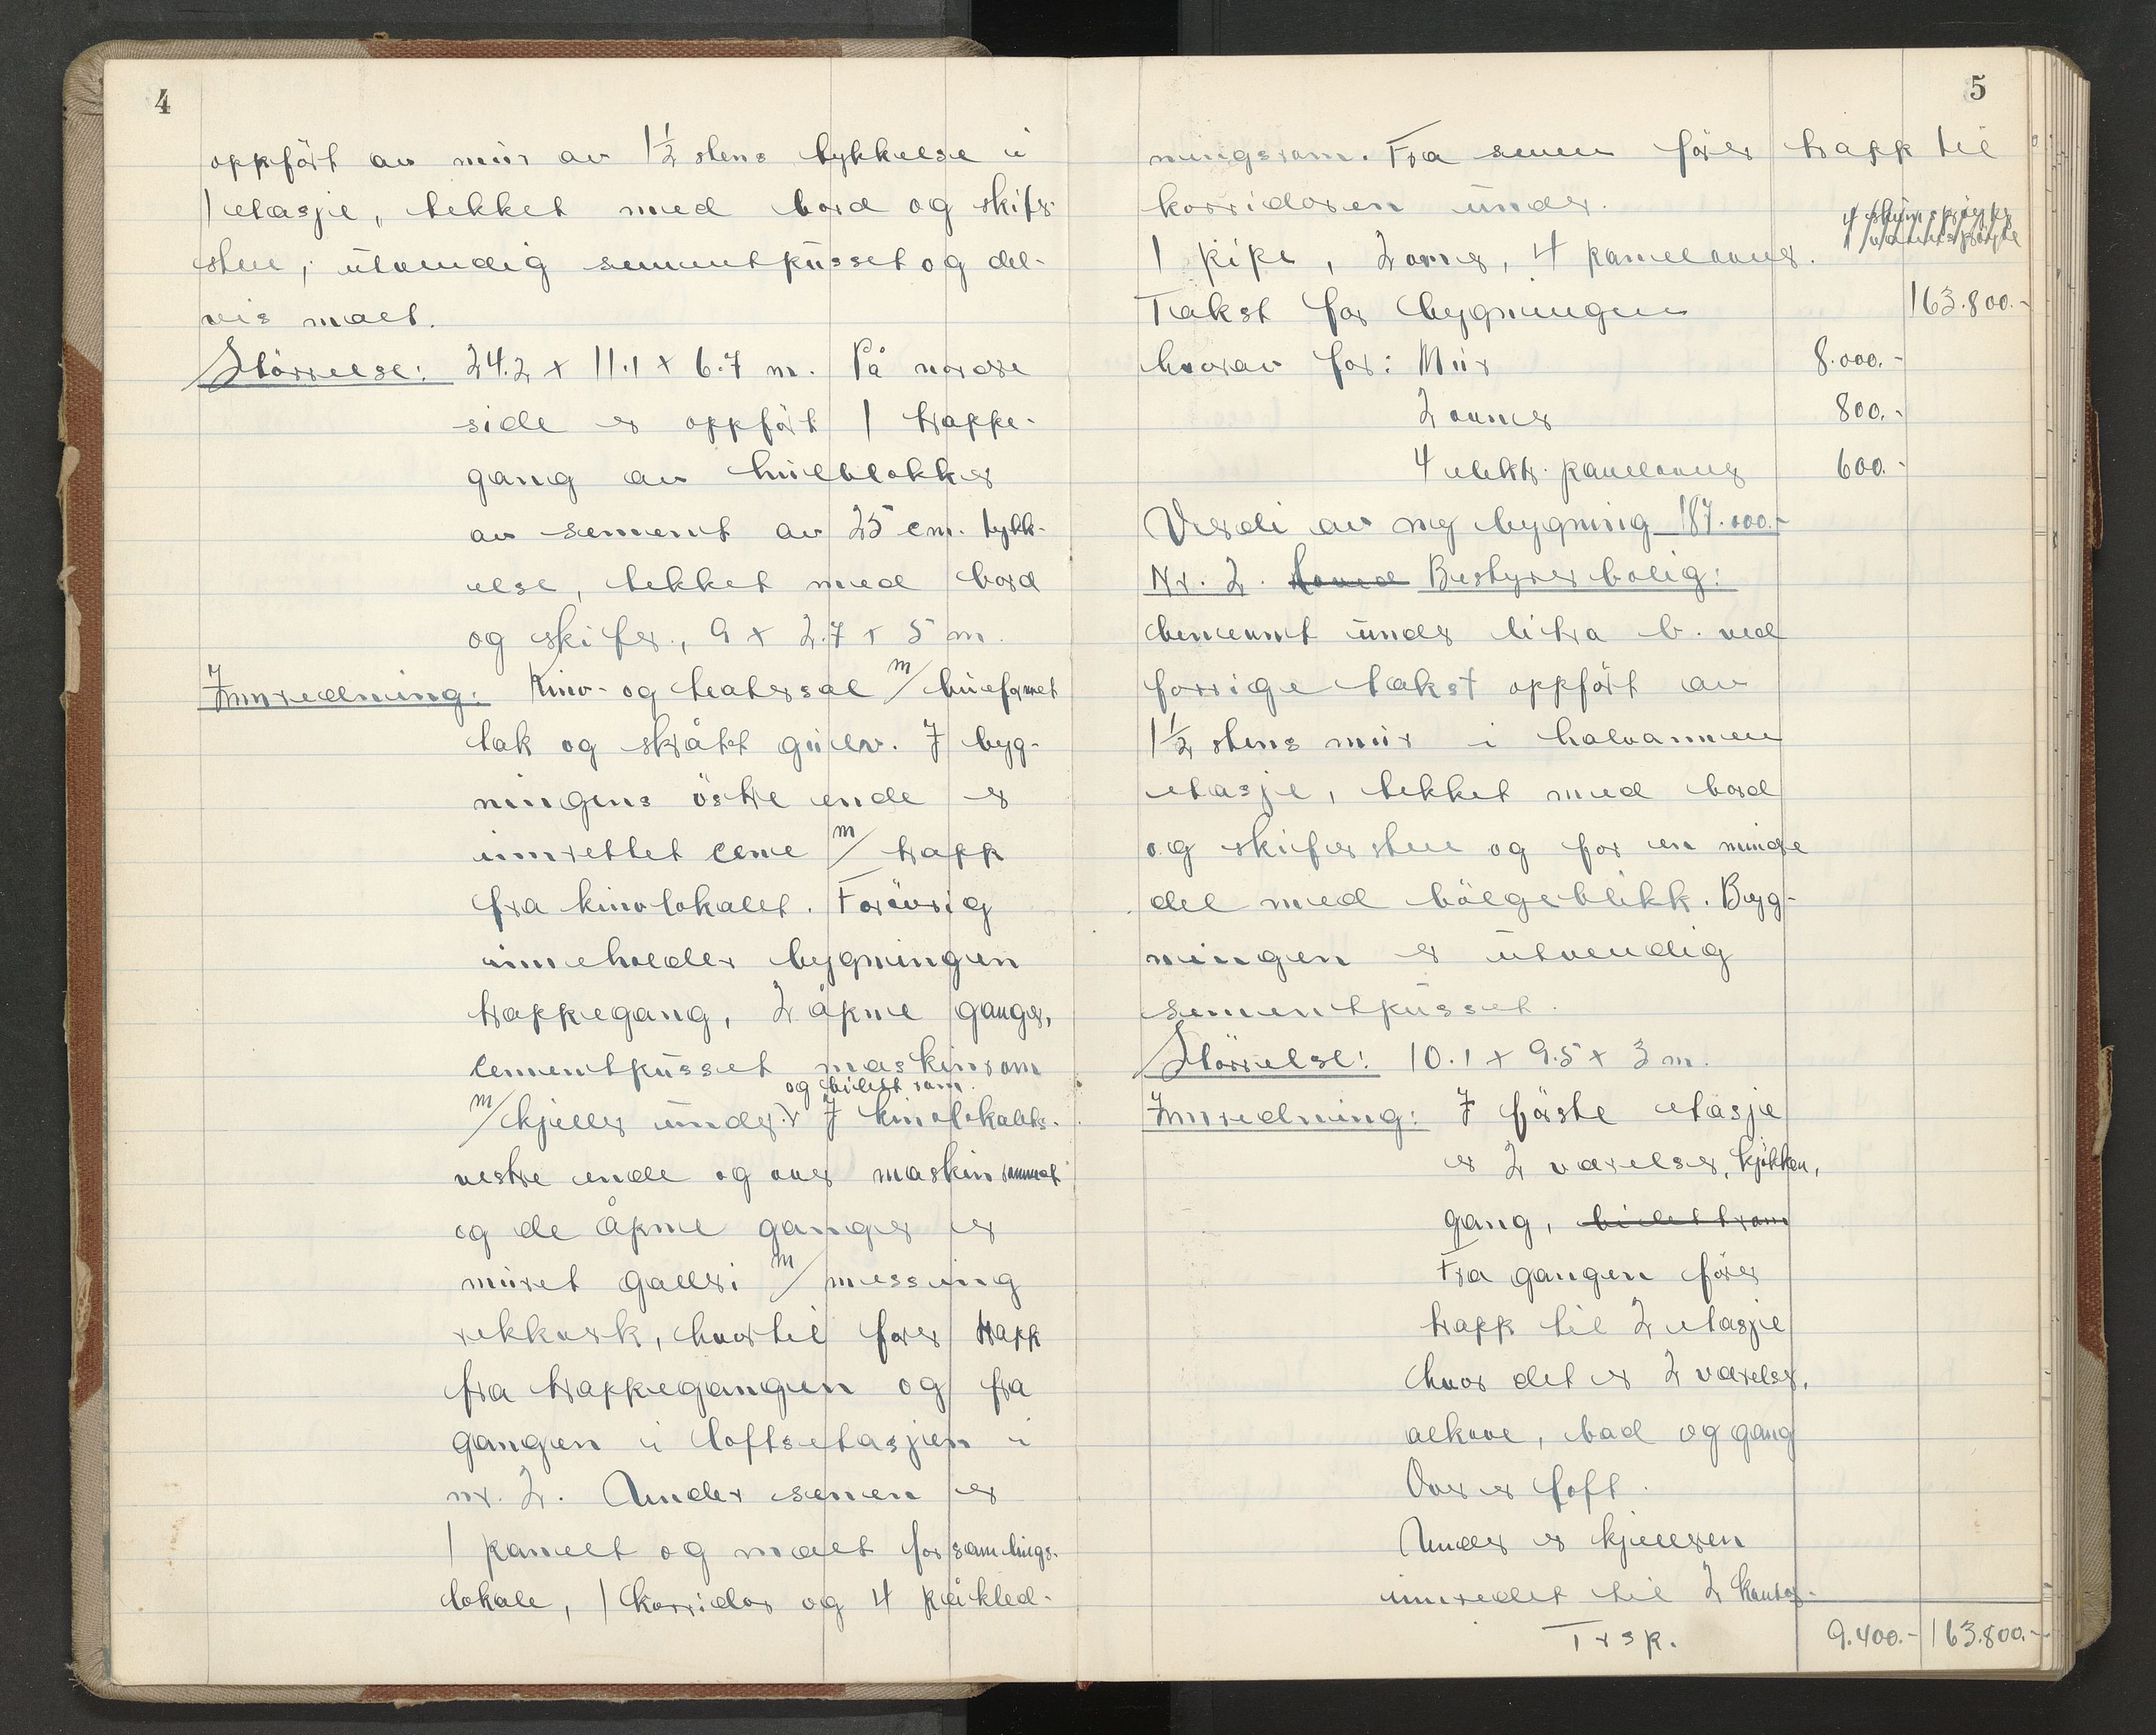 4
oppført av mur av 1½ stens tykkelse i
1 etasje, tekket med bord og skifer-
sten, utvendig sementpusset og del-
vis malt.
Størrelse: 24.2 x 11.1 x 6.7 m. På nordre
side er oppført 1 trappe-
gang av hulblokker
av sement av 25 cm. tykk-
else, tekket med bord
og skifer, 9 x 2.7 x 5 m.
Innredning: Kino- og teatersal m/ hueformet
tak og skrått gulv. I byg-
ningens østre ende er
innrettet cene m/ trapp
fra kinolokalet. Forøvrig
inneholder bygningen
trappegang, 2 åpne ganger,
cementpusset maskinrom
og billettrom.
m/ kjeller under. I kinolokalets
vestre ende og over maskinrommet
og de åpne ganger er
muret galleri m/ messing
rekkverk, hvortil fører trapp
fra trappegangen og fra
gangen i loftsetasjen i
nr. 2. Under senen er
1 panelt og malt forsamlings-
lokale, 1 korridor og 4 påkled-
5
ningsrom. Fra senen fører trapp til
korridoren under.
1 pipe, 2 ovner, 4 panelovner.
Takst for bygningen 163.800.-
hvorav for: Mur 8.000.-
2 ovner 800.-
4 elektr. panelovner 600.-
Verdi av ny bygning 187.000.-
Nr. 2. Bestyrerbolig:
benevnt under litra b. ved
forrige takst oppført av
1½ stens mur i halvannen
etasje, tekket med bord
og skifersten og for en mindre
del med bølgeblikk. Byg-
ningen er utvendig
sementpusset.
Størrelse: 10.1 x 9.5 x 3 m.
Innredning: I første etasje
er 2 værelser, kjøkken,
gang, billettrom
Fra gangen fører
trapp til 2 etasje
hvor det er 2 værelser,
alkove, bad og gang
Over er loft.
Under er kjelleren
innredet til 2 kontor-
Trsp. 9.400.- 163.800.-